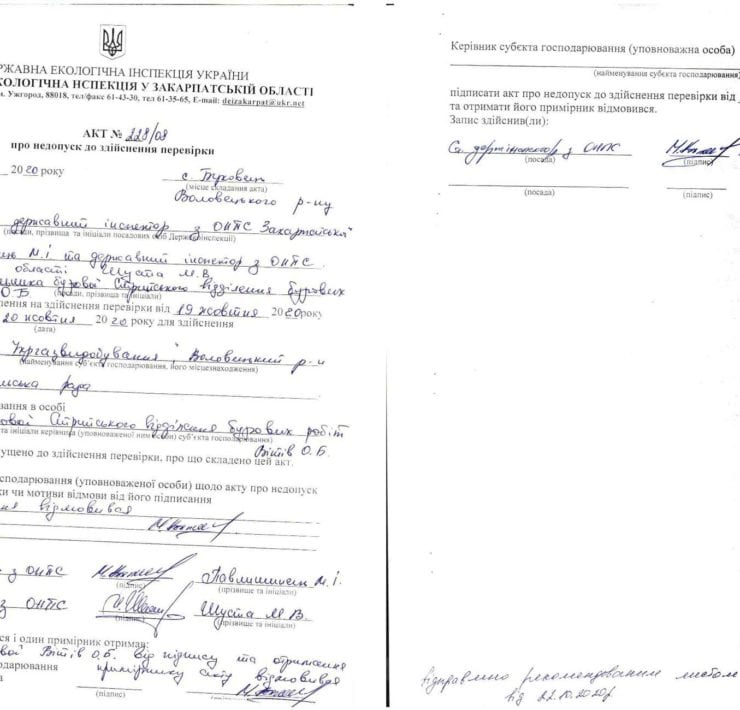 РЖАВНА ЕКОЛОГІЧНА ІНСПЕКЦІЯ УКРАЇНИ
КОЛОГІЧНА НСПЕКЦІЯ У ЗАКАРПАТСЬКІЙ ОБЛАСТІ
м. Ужгород, 88018, тел/факс 61-43-30, тел 61-35-65, E-mail: deizakarpat@ukr.net
АКТ № 228/08
про недопуск до здійснення перевірки
2020 року с. Туховець
(місце складання акта)
Воловецького р-ну
державний інспектор з ОНПС Закарпатської
(посади, прізвища та ініціали посадових осіб Держекоінспекції)
М.І. та державний інспектор з ОНПС
області Шуста М.В.
бурової Стрийського відділення бурових
О.Б. (посади, прізвища та ініціали)
лення на здійснення перевірки від 19 жовтня 2020 року
20 жовтня 2020 року для здійснення
(дата)
Укргазвидобування", Воловецький р-н
(найменування суб'єкта господарювання, його місцезнаходження)
рада
вання в особі
бурової Стрийського відділення бурових робіт
та ініціали керівника (уповноваженої ним особи) суб'єкта господарювання)
Вітів О.Б.
ущено до здійснення перевірки, про що складено цей акт.
сподарювання (уповноваженої особи) щодо акту про недопуск
ки чи мотиви відмови від його підписання
ння відмовився
з ОНПС Павлишинець М.І.
(підпис) (прізвище та ініціали)
з ОНПС Шуста М.В.
(підпис) (прізвище та ініціали)
ся і один примірник отримав:
вої Вітів О.Б. Від підпису та отримання
одарювання примірнику акту відмовився
(підпис)
Керівник субєкта господарювання (уповноважна особа)
(найменування субєкта господарювання)
підписати акт про недопуск до здійснення перевірки від
та отримати його примірник відмовився.
Запис здійснив(ли):
Ст. держінспектор з ОНПС
(посада) (підпис)
(посада) (підпис)
Відправлено рекомендованим листом
від 22.10.2020р.